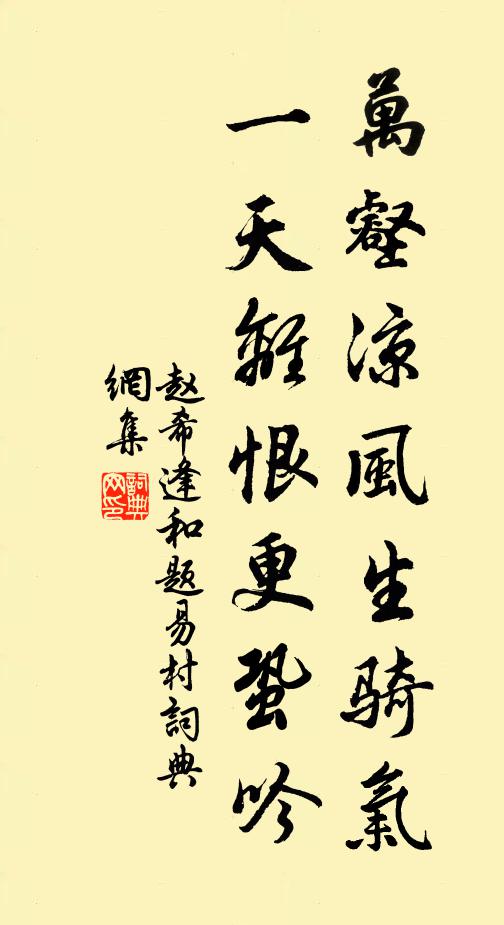 萬壑涼風生騎氣
一天離恨更蛩吟
赵希逢和题易村詞典
網集
詞典網印